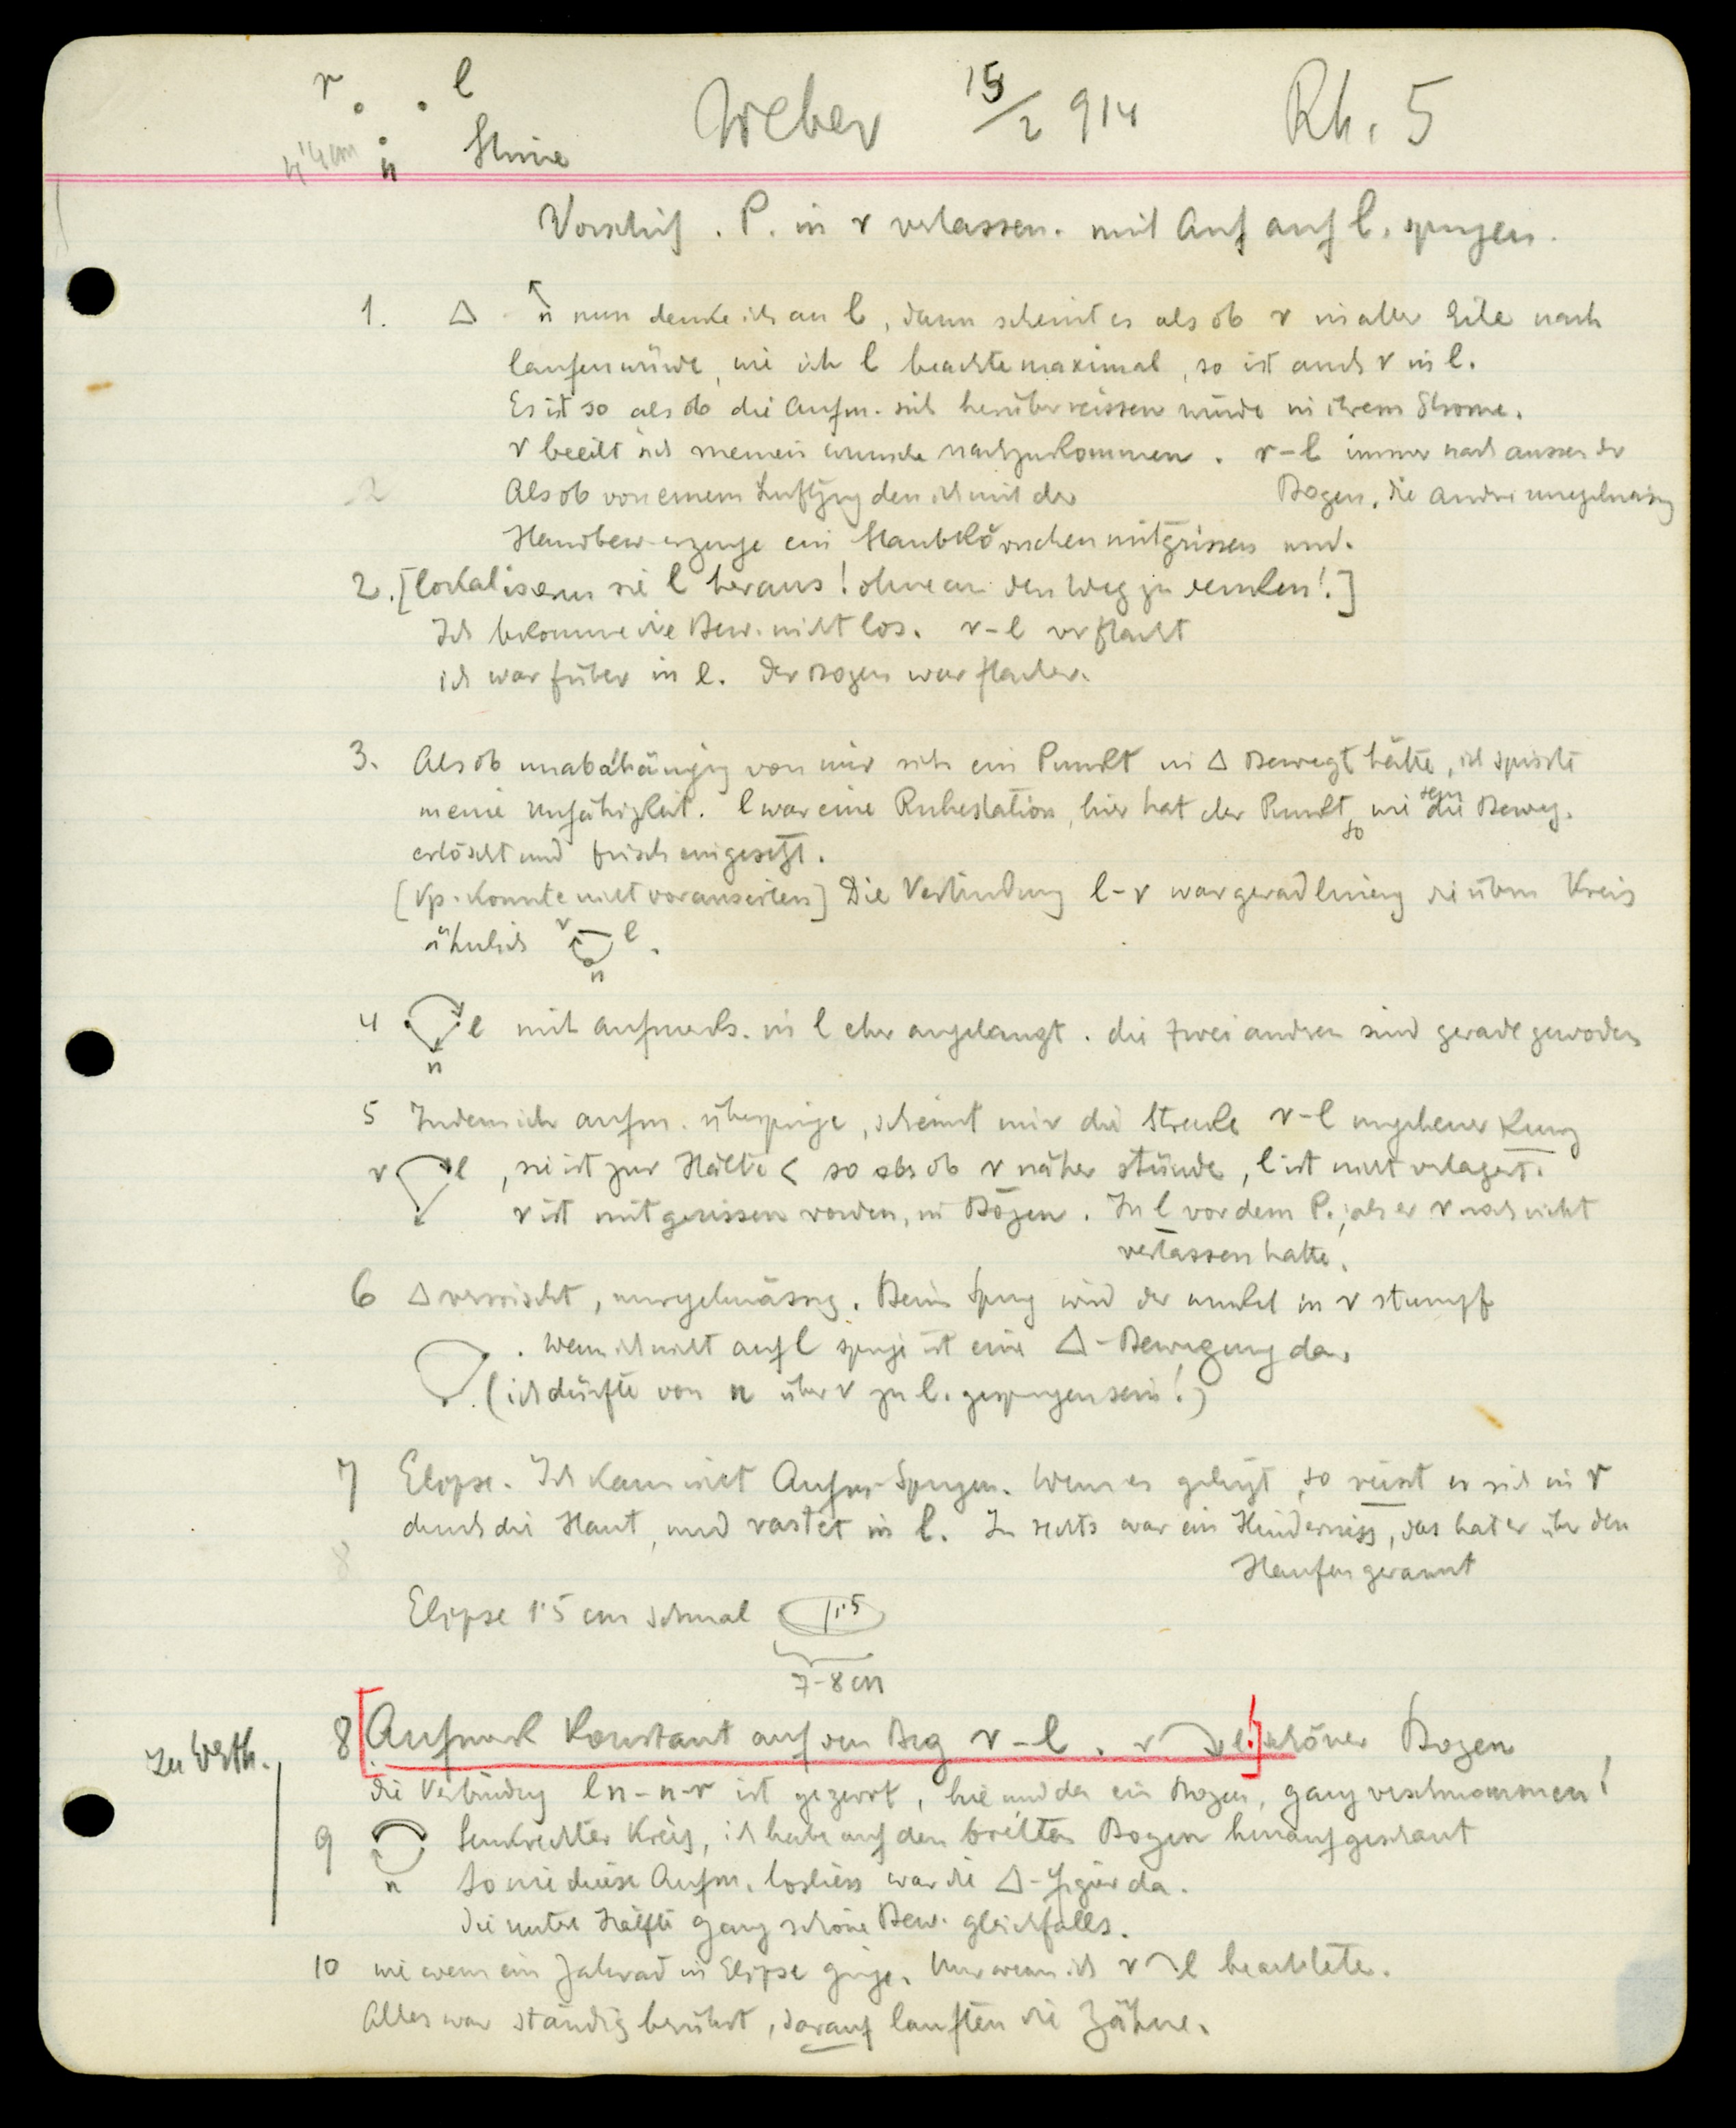 r l
Weber 15/2 914 Rh. 5
4'4 cm n Stirne
Vorschrif. P. in r verlassen. mit Auf auf l. springen.
1. △ n nun denke ich an l, dann scheint es als ob r in aller Eile nach
laufen würde, wie ich l beachte maximal, so ist auch r in l.
Es ist so als ob die Aufm. sich herüberreissen würde in ihrem Strome.
r beeilt sich meinem Wunsche nachzukommen. r-l immer nach aussen der
Als ob von einem Luftzug den ich mit der Bogen, die andre unregelmässig
2
Handbew. erzeuge ein Staubkörnchen mitgrissen wird.
2. [lokalisieren sie l heraus! ohne an den Weg zu denken!]
Ich bekomme die Bew. nicht los. r-l verflacht
ich war früher in l. Der Bogen war flacher.
3. Als ob unabhängig von mir sich ein Punkt in △ Bewegt hätte, ich spürte
meine Unfähigkeit. l war eine Ruhestation, hier hat der Punkt, so wie die Beweg.
erlöscht und frisch eingesetzt.
[Vp. konnte nicht vorauseilen] Die Verbindung l-r war geradlinig die übrn Kreis
ähnlich r l.
n
4 l mit Aufmerks. in l eher angelangt. die zwei andren sind gerade geworden
n
5 Indem ich aufm. überspringe, scheint mir die Strecke r-l ungeheuer kurz
r l, sie ist zur Hälfte < so als ob r näher stünde, l ist nicht verlagert.
r ist mitgerissen worden, in Bögen. In l vor dem P., als er r noch nicht
verlassen hatte!
6 △ verwischt, unregelmässig. Beim Sprung wird der Winkel in r stumpf
. Wenn ich nicht auf l springe ist eine △-Bewegung da.
(ich dürfte von n über r zu l. gesprungen sein!)
7 Elipse. Ich kann nicht Aufm-Springen. Wenn es gelingt, so reisst er sich in r
durch die Haut, und rastet in l. In rechts war ein Hinderniss, das hat er über den
8
Haufen gerannt
Elipse 1'5 cm schmal 1'5
7-8 cm
8 [Aufmerk konstant auf den Beg r-l. r l!] schöner Bogen
Zu Wrth.
die Verbindung ln-n-r ist gezerrt, hie und da ein Bogen, ganz verschwommen!
9 Senkrechter Kreis, ich habe auf den breiten Bogen hinaufgeschaut
n So wie diese Aufm. losliess war die △-Figur da.
die untre Hälfte ganz schöne Bew. gleichfalls.
10 wie wenn ein Zahnrad in Elipse ginge. Nur wenn ich r l beachtete.
Alles war ständig berührt, darauf lauften die Zähne.